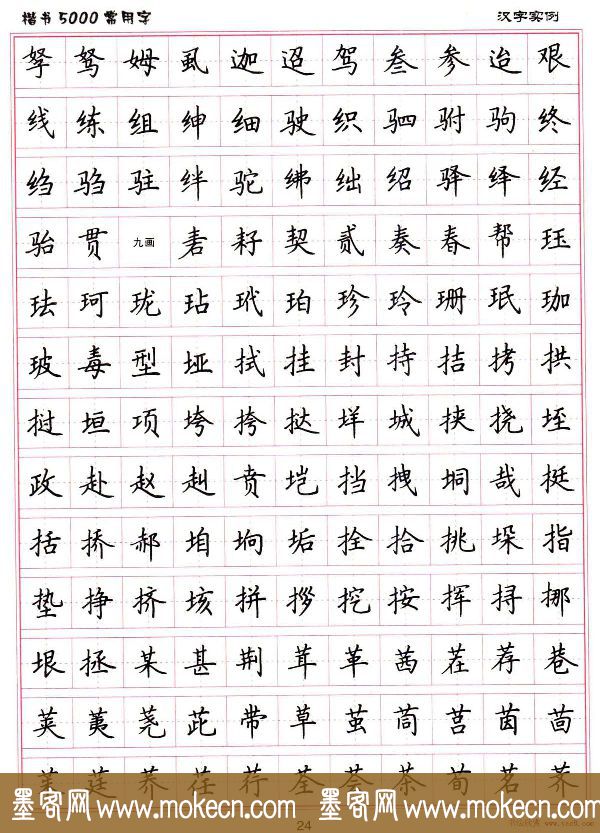 楷书5000常用字 汉字实例
孥 驽 姆 虱 迦 迢 驾 叁 参 迨 艰
线 练 组 绅 细 驶 织 驷 驸 驹 终
绉 驺 驻 绊 驼 绋 绌 绍 驿 绎 经
骀 贯 九画 砉 耔 契 贰 奏 春 帮 珏
珐 珂 珑 玷 玳 珀 珍 玲 珊 珉 珈
玻 毒 型 垭 拭 挂 封 持 拮 拷 拱
挝 垣 项 垮 挎 挞 垟 城 挟 挠 垤
政 赴 赵 赳 贲 垲 挡 拽 垌 哉 挺
括 挢 郝 垍 垧 垢 拴 拾 挑 垛 指
垫 挣 挤 垓 拼 拶 挖 按 挥 挦 挪
垠 拯 某 甚 荆 茸 革 茜 茬 荐 巷
荚 荑 荛 茈 带 草 茧 茼 莒 茵 茴
莲 荞 茯 荇 荃 荟 茶 荀 茗 荠
墨客网www.mokecn.com 墨客网www.mokecn.com
24